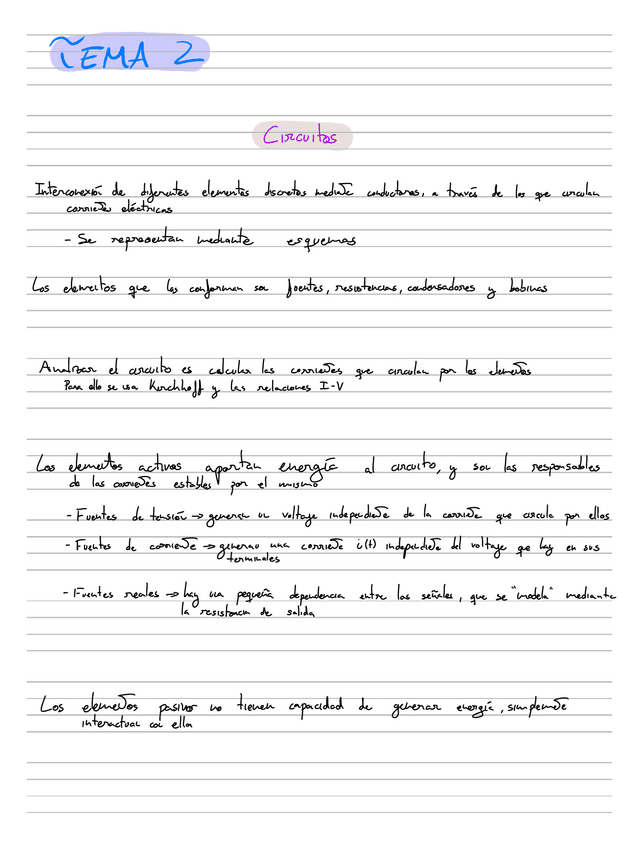 TEMA 2
Circuitos
Interconexión de diferentes elementos discretos mediante conductores, a través de los que circulan
corrientes eléctricas
- Se representan mediante esquemas
Los elementos que los conforman son fuentes, resistencias, condensadores y bobinas
Analizar el circuito es calcular las corrientes que circulan por los elementos
Para ello se usa Kirchhoff y las relaciones I-V
Los elementos activos aportan energía al circuito, y son los responsables
de las corrientes estables por el mismo
- Fuentes de tensión → generan un voltaje independiente de la corriente que circula por ellos
- Fuentes de corriente → generan una corriente i(t) independiente del voltaje que hay en sus
terminales
- Fuentes reales → hay una pequeña dependencia entre las señales, que se "modela" mediante
la resistencia de salida
Los elementos pasivos no tienen capacidad de generar energía, simplemente
interactuar con ella